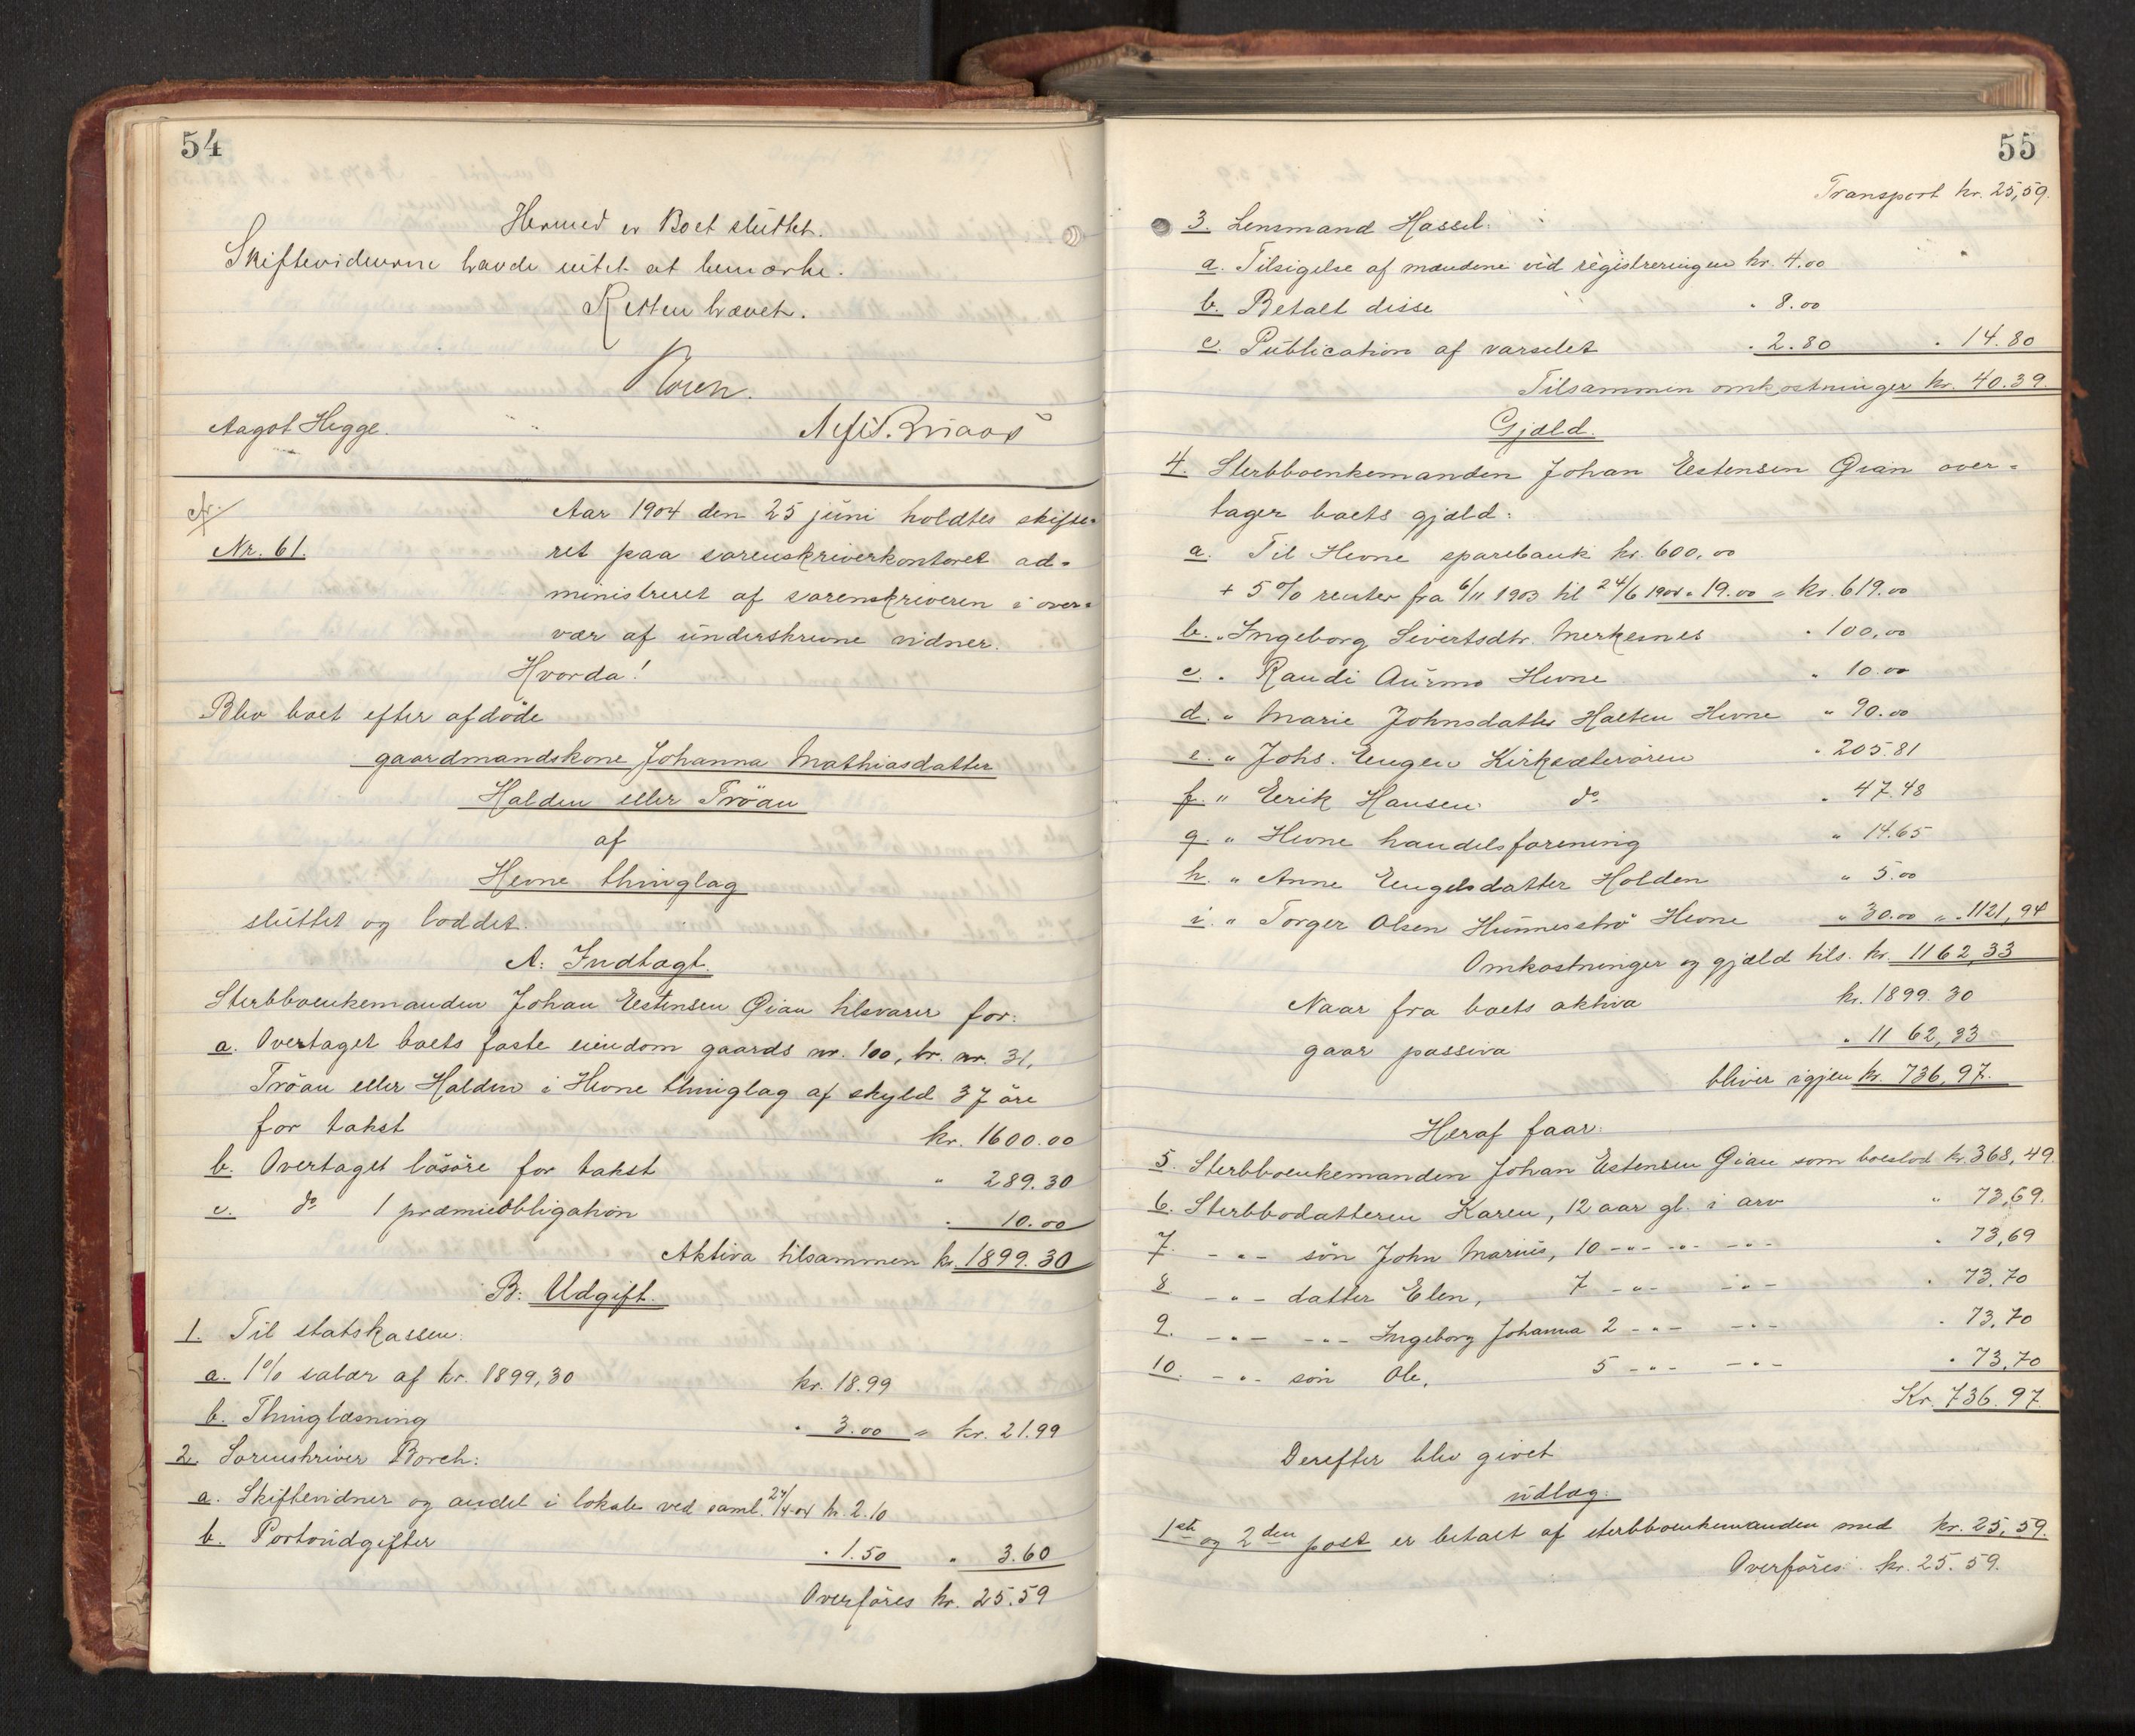 54
Hermed er Boet sluttet.
Skiftevidnerne havde intet at bemærke.
Retten hævet.
Aagot Hegge.
Nr. 61.
Aar 1904 den 25 juni holdtes skifte-
ret paa sorenskriverkontoret ad-
ministreret af sorenskriveren i over-
vær af underskrevne vidner.
Hvorda!
Blev boet efter afdöde
gaardmandskone Johanna Mathiasdatter
Halden eller Tröan
af
Hevne thinglag
sluttet og loddet.
A: Indtægt.
Sterbboenkemanden Johan Estensen Öian tilsvarer for:
a. Overtaget boets faste eiendom gaards nr. 100, br. nr. 31,
Tröan eller Halden i Hevne thinglag af skyld 37 öre
for takst kr. 1600.00
b. Overtaget lösöre for takst " 289.30
c. do 1 præmieobligation " 10.00
Aktiva tilsammen kr. 1899.30
B: Udgift.
1. Til statskassen:
a. 1% salær af kr. 1899,30 kr. 18.99
b. Thinglæsning " 3.00 = kr. 21.99
2. Sorenskriver Borch:
a. Skiftevidner og andel i lokale ved saml. 27/4-04 kr. 2.10
b. Portoudgifter " 1.50 " 3.60
Overföres kr. 25.59
55
Transport kr. 25,59.
3. Lensmand Hassel:
a. Tilsigelse af mændene ved registreringen kr. 4.00
b. Betalt disse " 8.00
c. Publication af varselet " 2.80 " 14.80
Tilsammen omkostninger kr. 40.39.
Gjæld.
4. Sterbboenkemanden Johan Estensen Öian over-
tager boets gjæld:
a. Til Hevne sparebank kr. 600,00
+ 5% renter fra 6/11 1903 til 24/6 1904 " 19.00 = kr. 619.00
b. " Ingeborg Sivertsdtr. Merkesnes " 100,00
c. " Randi Aurmo Hevne " 10.00
d. " Marie Johnsdatter Halten Hevne " 90.00
e. " Johs. Engen Kirksæterören " 205.81
f. " Eerik Hansen do " 47.48
g. " Hevne handelsforening " 14.65
h. " Anne Engelsdatter Holden " 5.00
i. " Torger Olsen Hevne " 30.00 " 1121,94
Omkostninger og gjæld tils. kr. 1162,33
Naar fra boets aktiva kr. 1899.30
gaar passiva " 1162,33
bliver igjen kr. 736,97.
Heraf faar:
5. Sterbboenkemanden Johan Estensen Öian som boeslod kr. 368,49.
6. Sterbbodatteren Karen, 12 aar gl. i arv " 73,69.
7. -"- sön John Marius, 10 -"- -"- -"- " 73,69
8 -"- datter Elen, 7 -"- -"- " 73.70
9. -"- -"- Ingeborg Johanna 2 -"- -"- " 73.70
10. -"- sön Ole, 5 -"- -"- " 73,70
Kr. 736.97
Derefter blev givet
udlæg:
1ste og 2den post er betalt af sterbboenkemanden med kr. 25,59.
Overföres kr. 25.59.